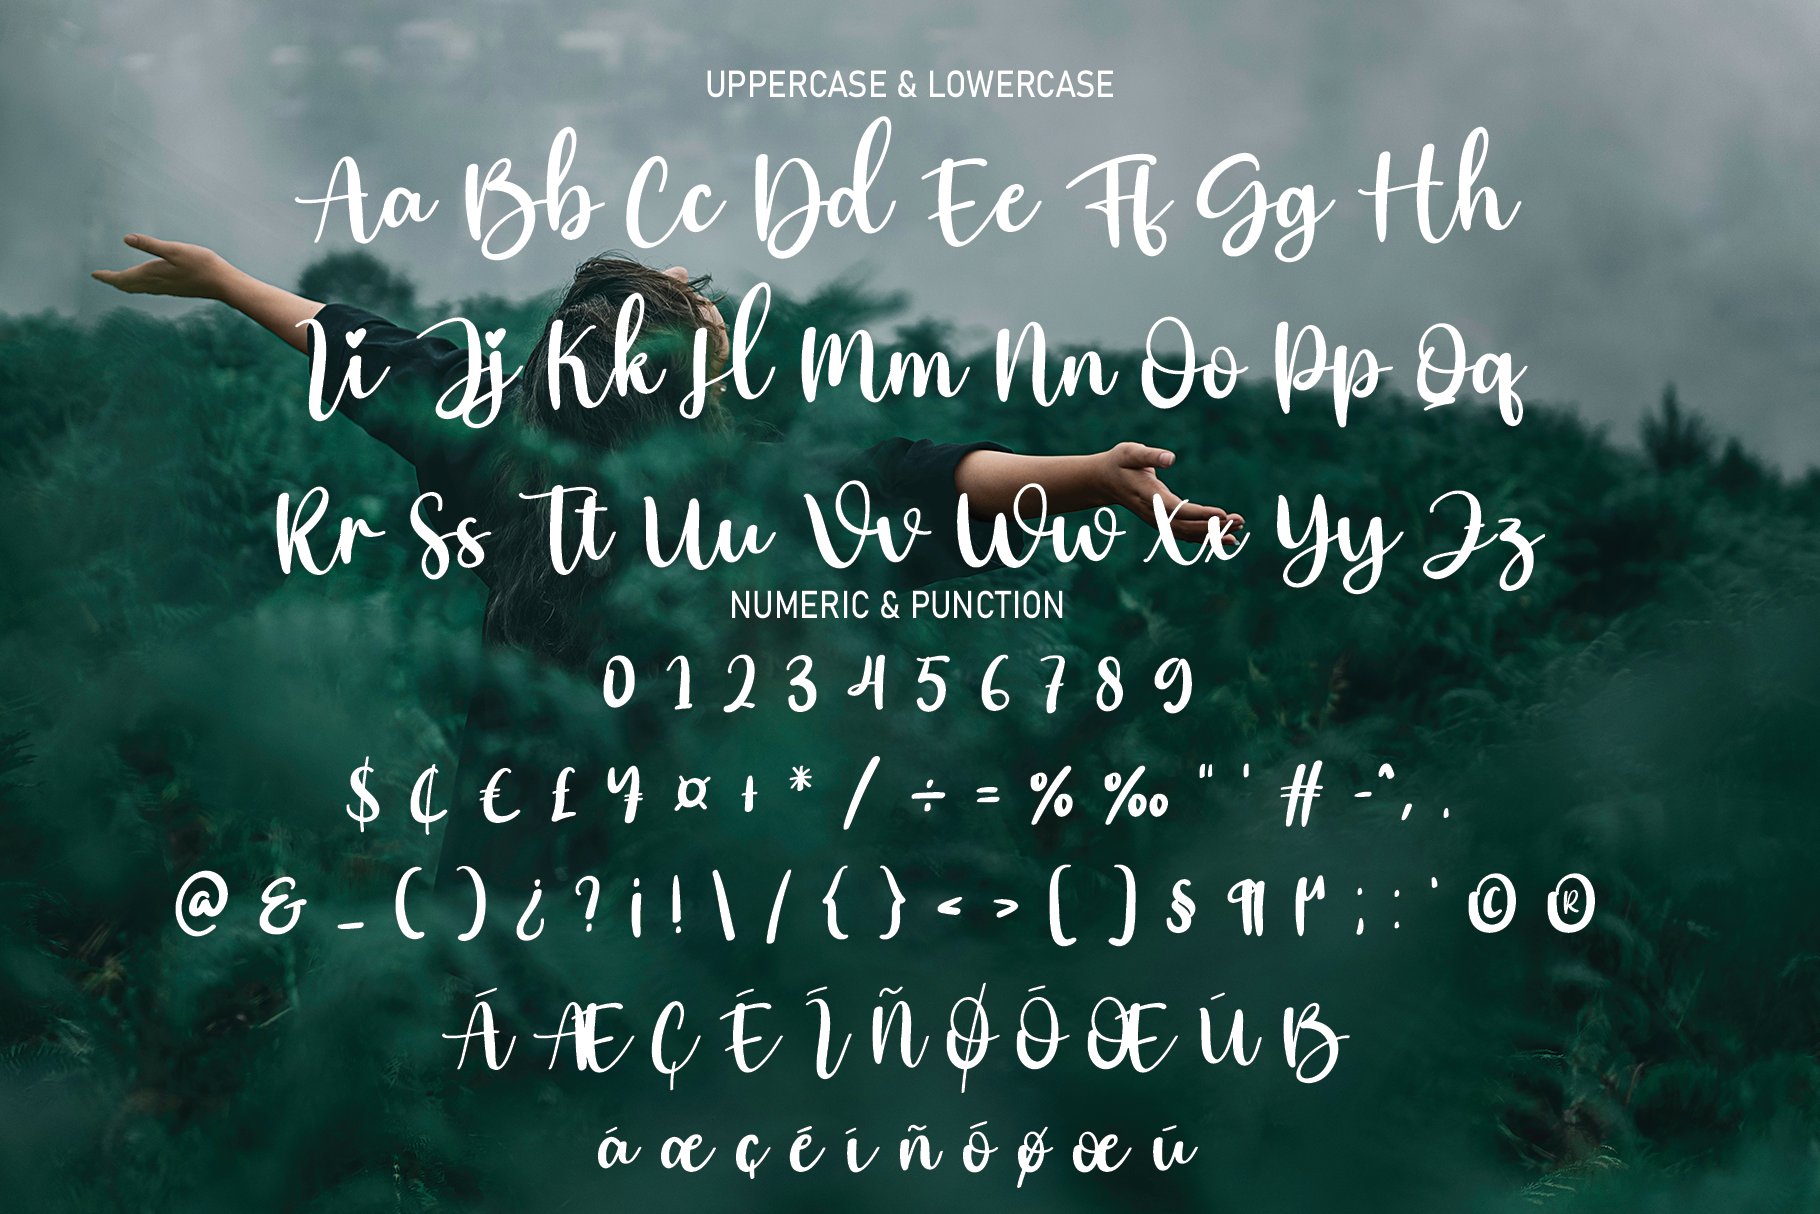 UPPERCASE & LOWERCASE
Aa Bb Cc Dd Ee Ff Gg Hh
Ii Jj Kk Ll Mm Nn Oo Pp Qq
Rr Ss Tt Uu Vv Ww Xx Yy Zz
NUMERIC & PUNCTION
0 1 2 3 4 5 6 7 8 9
$ ¢ € £ ¥ ¤ + * / ÷ = % ‰ " ' # - ^ , .
@ & _ ( ) ¿ ? ¡ ! \ / { } < > [ ] § ¶ µ ; : ' © ®
Á Æ Ç É Í Ñ Ø Ó Œ Ú B
á æ ç é í ñ ó ø œ ú